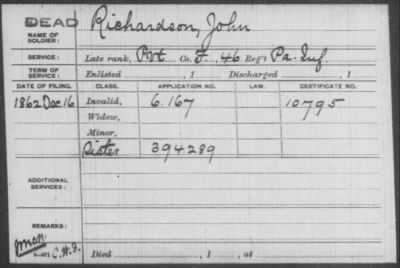 DEAD
NAME OF SOLDIER: Richardson, John
SERVICE: Late rank, Pvt Co. F, 46 Reg't Pa. Inf.
TERM OF SERVICE: Enlisted , 1 Discharged , 1
DATE OF FILING. CLASS. APPLICATION NO. LAW. CERTIFICATE NO.
1862 Dec 16 Invalid, 6.167 10795
Widow,
Minor,
Sister 394289
ADDITIONAL SERVICES:
REMARKS:
C.W.F. Died , 1 , at